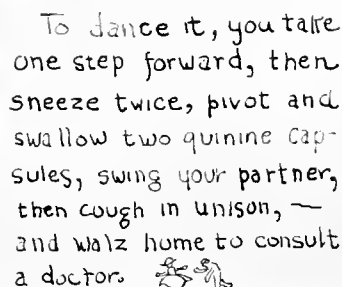 To dance it, you take
one step forward, then
sneeze twice, pivot and
swallow two quinine Cap-
sules, swing your partner,
then cough in unison, —
and walz home to consult
a doctor.